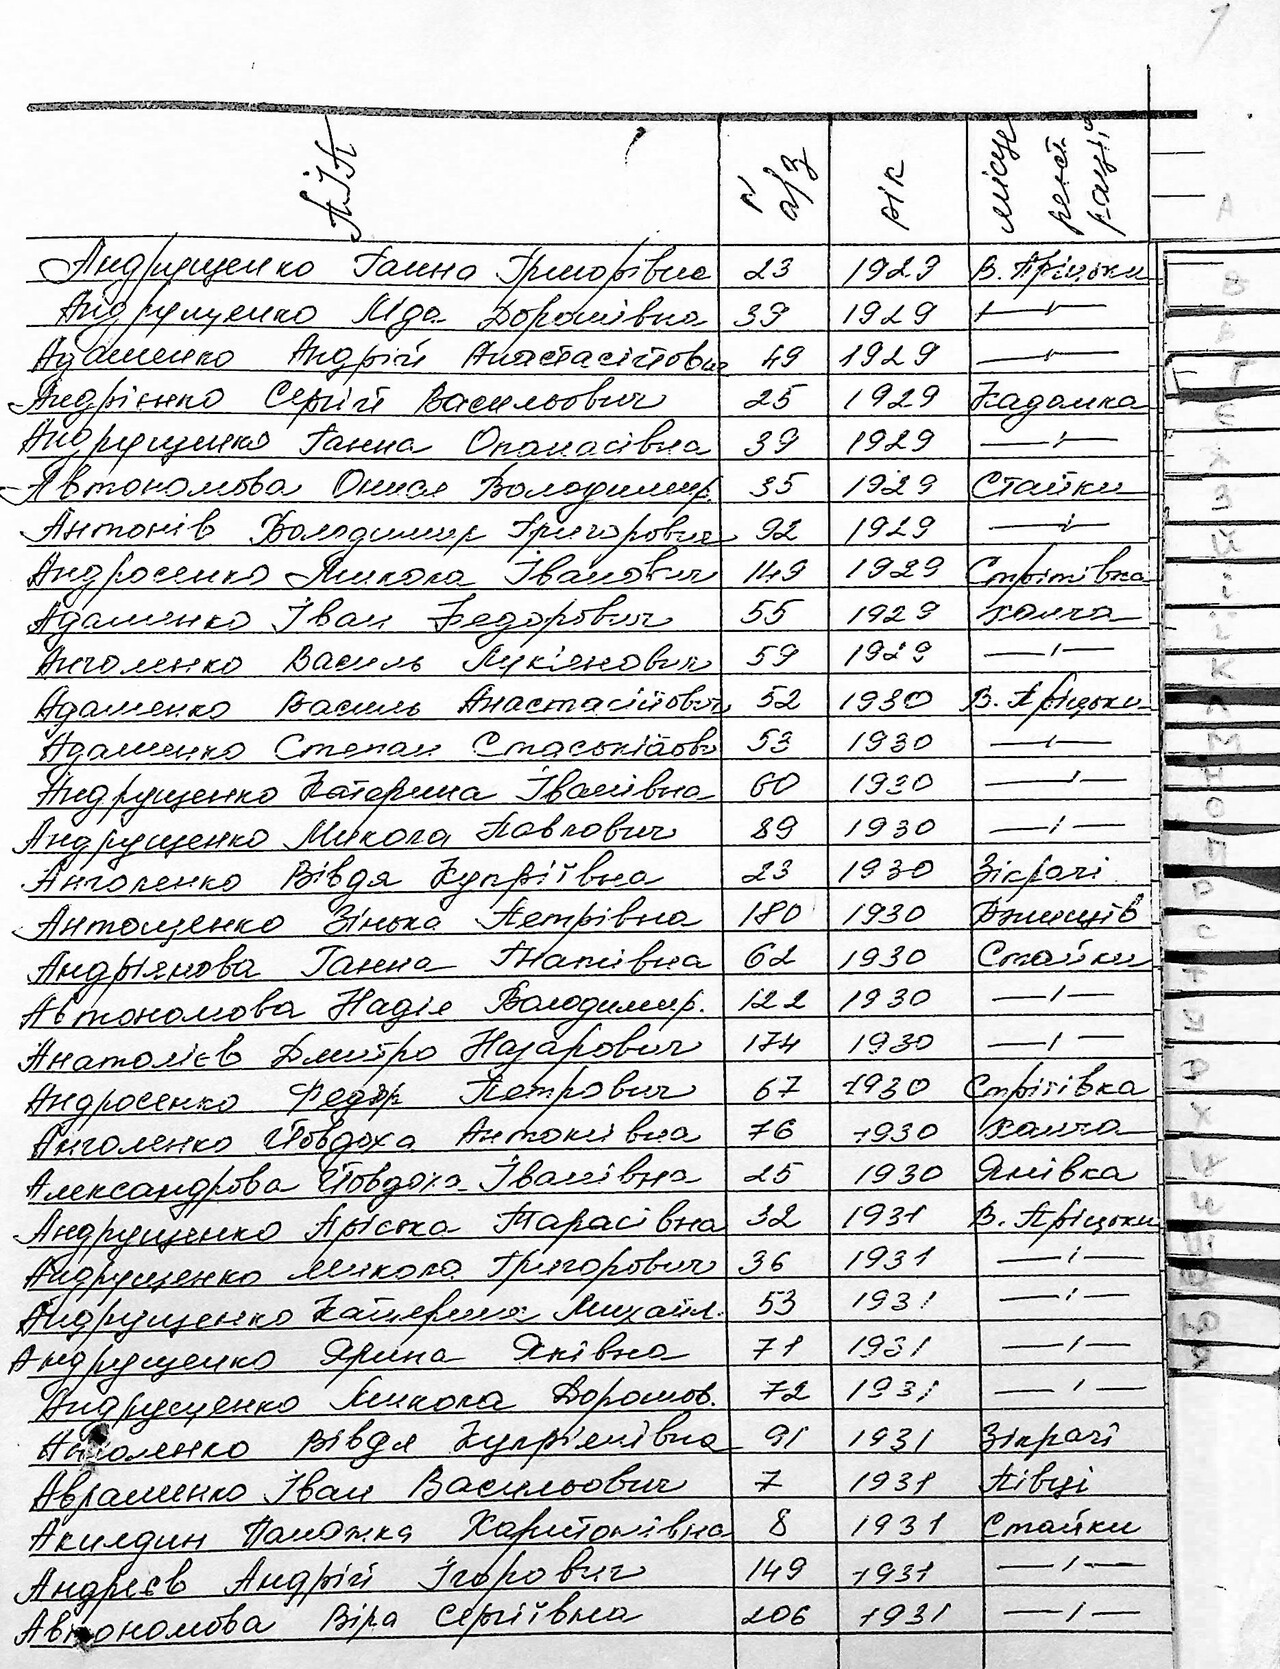 1
П.І.П. № а/з рік місце реєстрації
Андрущенко Ганна Григорівна 23 1929 В. Пріцьки
Андрущенко Ида Дорошівна 39 1929 —〃—
Адаменко Андрій Анастасійович 49 1929 —〃—
Андрієнко Сергій Васильович 25 1929 Кадомка
Андрущенко Ганна Опанасівна 39 1929 —〃—
Автономова Онися Володимир. 35 1929 Стайки
Антонів Володимир Григорович 92 1929 —〃—
Андросенко Микола Іванович 149 1929 Стрітівка
Адаменко Іван Федорович 55 1929 Халча
Анголенко Василь Лук'янович 59 1929 —〃—
Адаменко Василь Анастасійович 52 1930 В. Пріцьки
Адаменко Степан Стаськійов 53 1930 —〃—
Андрущенко Катерина Іванівна 60 1930 —〃—
Андрущенко Микола Павлович 89 1930 —〃—
Анголенко Вівдя Купріївна 23 1930 Зікрачі
Антощенко Зінька Петрівна 180 1930 Юшців
Андріянова Ганна Гнатівна 62 1930 Стайки
Автономова Надія Володимир. 122 1930 —〃—
Анатолієв Дмитро Назарович 174 1930 —〃—
Андросенко Федір Петрович 67 1930 Стрітівка
Анголенко Йовдоха Антонівна 76 1930 Халча
Александрова Йовдоха Іванівна 25 1930 Янівка
Андрущенко Пріська Тарасівна 32 1931 В. Пріцьки
Андрущенко Микола Григорович 36 1931 —〃—
Андрущенко Катерина Михайл. 53 1931 —〃—
Андрущенко Ярина Яківна 71 1931 —〃—
Андрущенко Микола Дорошов. 72 1931 —〃—
Анголенко Вівдя Купріянівна 91 1931 Зікрачі
Авраменко Іван Васильович 7 1931 Півці
Акилдин Паножка Харитонівна 8 1931 Стайки
Андрєєв Андрій Ігорович 149 1931 —〃—
Автономова Віра Сергіївна 206 1931 —〃—